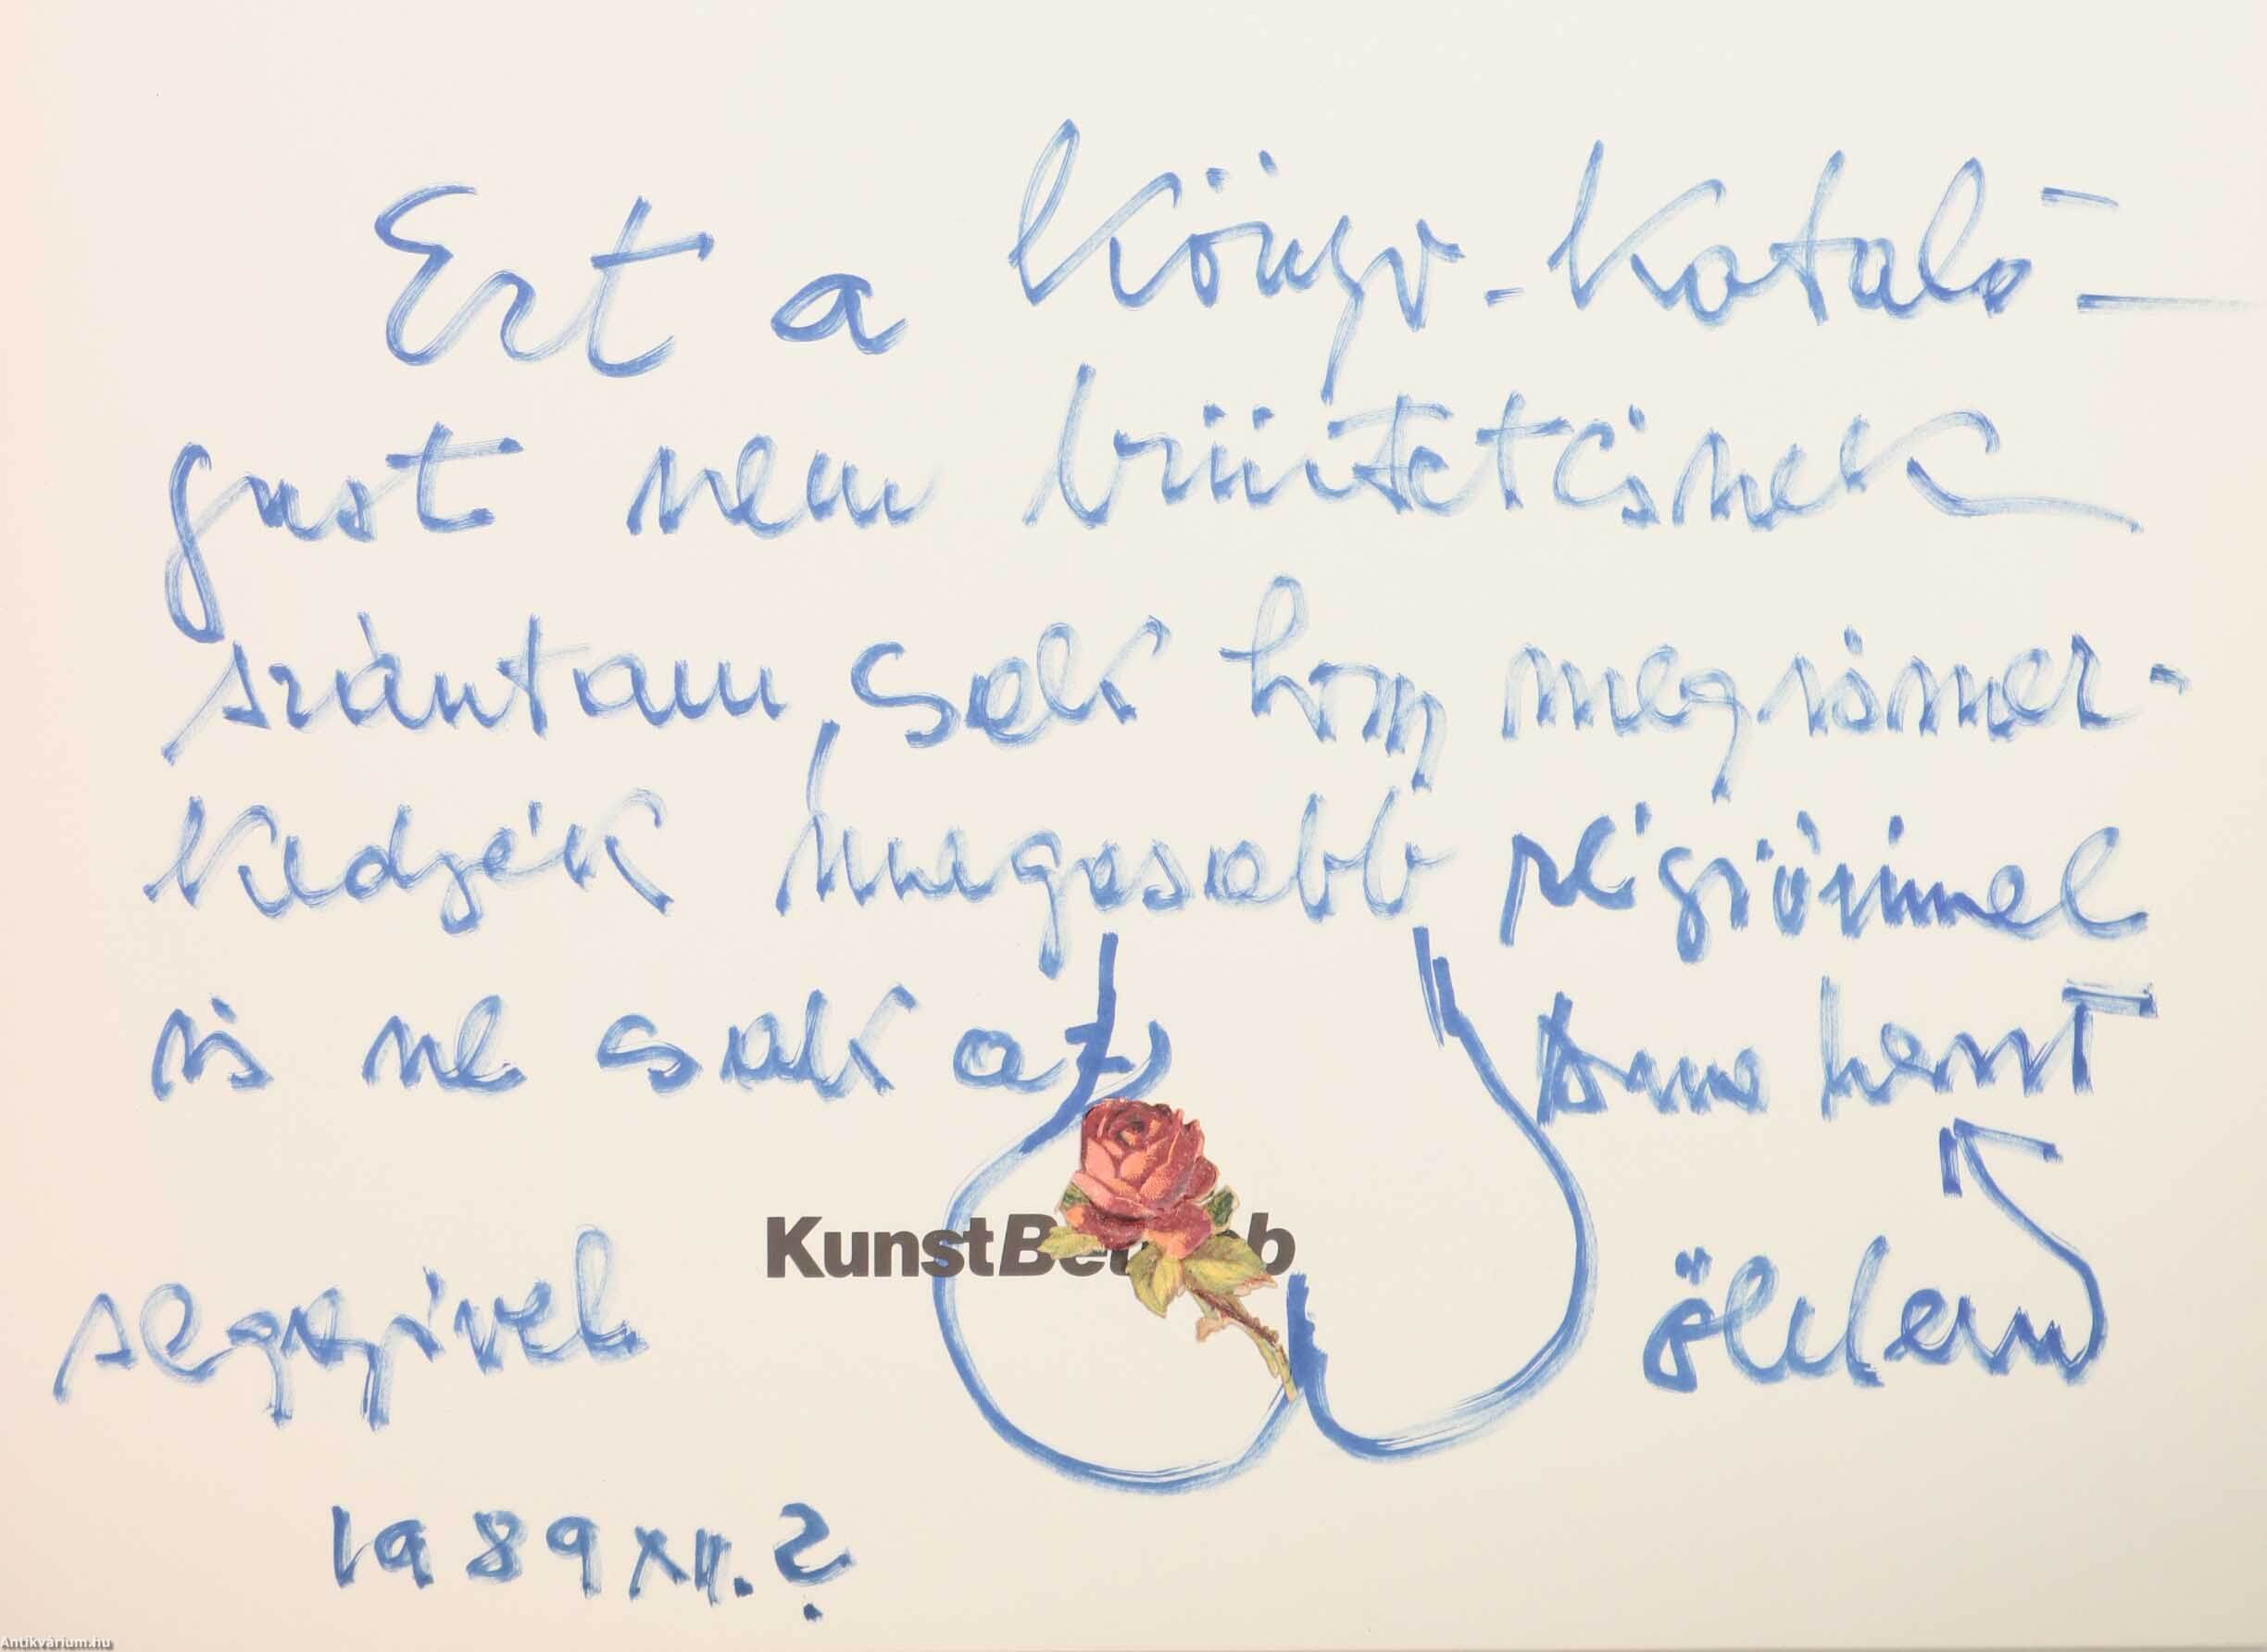 Ezt a könyv-kataló-
gust nem büntetésnek
szántam, csak hogy megismer-
kedjék magasabb régióimmal
is ne csak az
KunstBet b
seggeivel
öleléssel
1989 XII. ?
Antikvárium.hu